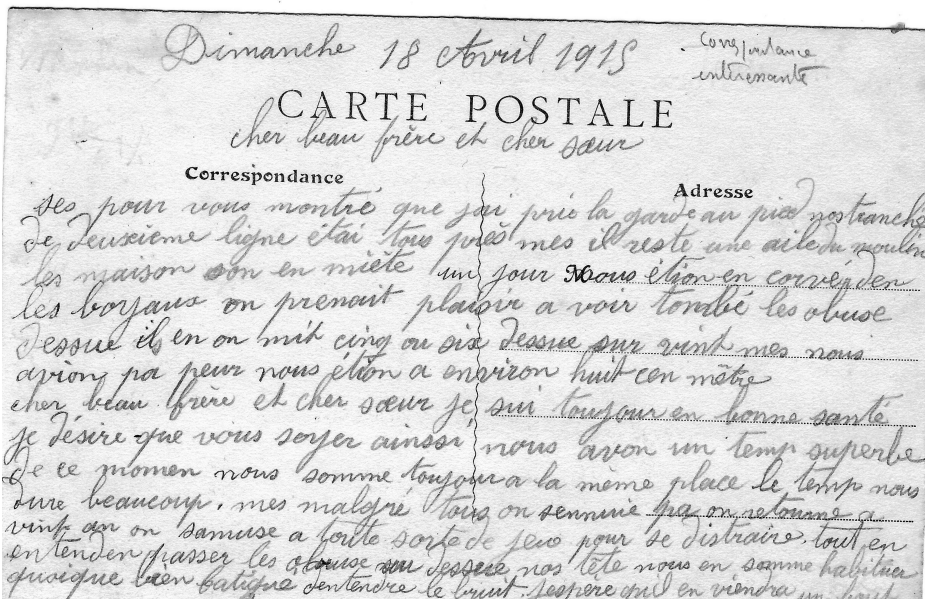 Dimanche 18 Avril 1915
Correspondance
intéressante
CARTE POSTALE
cher beau frère et cher sœur
Correspondance
Adresse
ses pour vous montré que jai prie la garde au pied nos tranché
de deuxième ligne étai tous près mes il reste une aile du moulin
les maison son en miète un jour Nous étion en corvée, den
les boyaux on prenait plaisir a voir tombé les obuse
dessue ils en on mit cinq ou six dessue sur vint mes nous
avion pa peur nous étion a environ huit cen mètre
cher beau frère et cher sœur je sui toujour en bonne santé
je désire que vous soyer ainssi, nous avon un temp superbe
de ce momen nous somme toujour a la même place le temp nous
dure beaucoup, mes malgré tous on sennuie pa on retourne a
vint an on samuse a toute sorte de jeux pour se distraire. tout en
entenden passer les obuse au dessue nos tête nous en somme habituer
quoique bien fatigue dentendre le bruit. jespère quil en viendra un bout